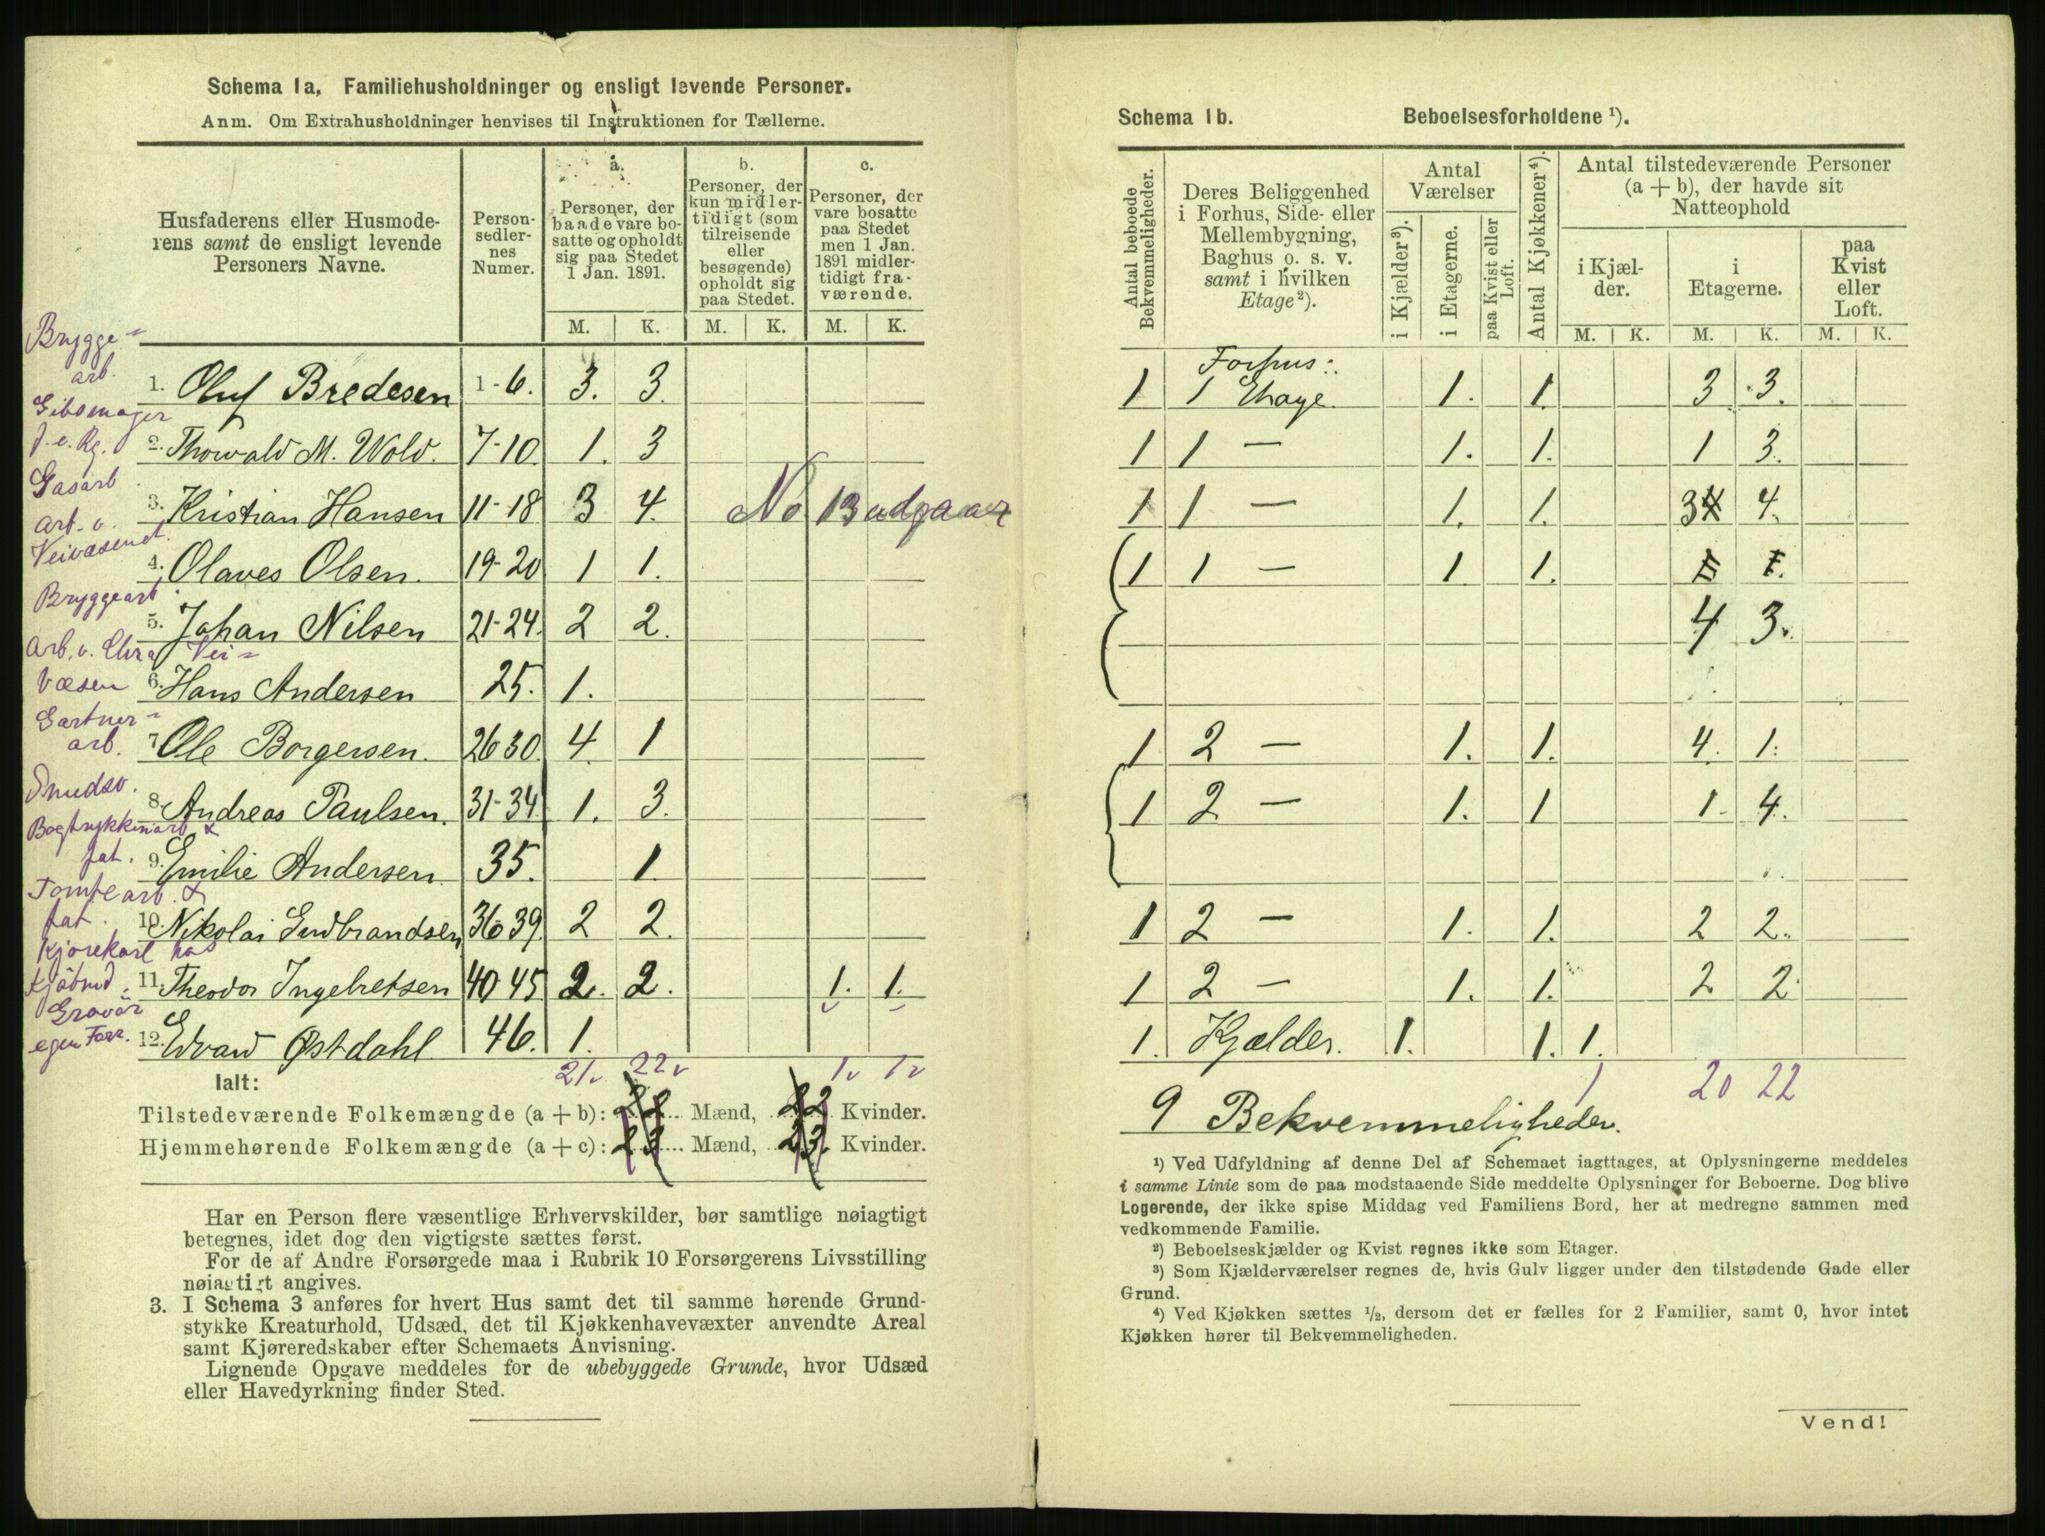 Schema 1a, Familiehusholdninger og ensligt levende Personer.
Anm. Om Extrahusholdninger henvises til Instruktionen for Tællerne.
Husfaderens eller Husmode-
rens samt de ensligt levende
Personers Navne.
Person-
sedler-
nes
Numer.
a.
Personer, der
baade vare bo-
satte og opholdt
sig paa Stedet
1 Jan. 1891.
b.
Personer, der
kun midler-
tidigt (som
tilreisende
eller
besøgende)
opholdt sig
paa Stedet.
c.
Personer, der
vare bosatte
paa Stedet
men 1 Jan.
1891 midler-
tidigt fra-
værende.
M. K. M. K. M. K.
Brygge-
arb.
1. Oluf Bredesen 1-6. 3. 3.
Gibsmager
f. e. Rg.
2. Thorvald M. Wold. 7-10. 1. 3
Gasarb.
3. Kristian Hansen 11-18 3 4. No 13 udgaar
arb. v.
Veivæsenet.
4. Olaves Olsen. 19-20 1 1.
Bryggearb.
5. Johan Nilsen 21-24. 2 2.
Arb. v. Chra Vei-
Væsen
6. Hans Andersen 25. 1.
Gartner-
arb.
7. Ole Borgersen. 26 30. 4. 1
Smedsv.
8. Andreas Paulsen. 31-34. 1. 3.
Bogtrykkeriarb &
fat.
9. Emilie Andersen. 35. 1.
Tomtearb. &
fat.
10. Nikolai Gudbrandsen 36-39. 2 2.
Kjørekarl hos
Kjöbmd.
11. Theodor Ingebretsen 40 45 2. 2. 1. 1.
Gravör
egen Forr.
12. Edvard Østdahl 46. 1.
Ialt: 21 22 1 1
Tilstedeværende Folkemængde (a + b): 22 Mænd, 22 Kvinder.
Hjemmehørende Folkemængde (a + c): 23 Mænd, 23. Kvinder.
Har en Person flere væsentlige Erhvervskilder, bør samtlige nøiagtigt
betegnes, idet dog den vigtigste sættes først.
For de af Andre Forsørgede maa i Rubrik 10 Forsørgerens Livsstilling
nøiagtigt angives.
3. I Schema 3 anføres for hvert Hus samt det til samme hørende Grund-
stykke Kreaturhold, Udsæd, det til Kjøkkenhavevæxter anvendte Areal
samt Kjøreredskaber efter Schemaets Anvisning.
Lignende Opgave meddeles for de ubebyggede Grunde, hvor Udsæd
eller Havedyrkning finder Sted.
Schema 1b. Beboelsesforholdene ¹).
Antal beboede
Bekvemmeligheder.
Deres Beliggenhed
i Forhus, Side- eller
Mellembygning,
Baghus o. s. v.
samt i hvilken
Etage ²).
Antal
Værelser
i Kjælder ³).
i Etagerne.
paa Kvist eller
Loft.
Antal Kjøkkener ⁴).
Antal tilstedeværende Personer
(a + b), der havde sit
Natteophold
i Kjæl-
der.
i
Etagerne.
paa
Kvist
eller
Loft.
M. K. M. K. M. K.
Forhus:
1 1 Etage. 1. 1. 3 3.
1 1 — 1. 1. 1 3.
1 1 — 1. 1. 3 4 4.
1 1 — 1. 1. 1.
4 3.
1 2 — 1. 1. 4. 1.
1 2 — 1. 1 1 4.
1 2 — 1. 1. 2 2.
1 2 — 1. 1. 2 2
1. Kjælder. 1. 1. 1.
1 20 22
9 Bekvemmeligheder.
¹) Ved Udfyldning af denne Del af Schemaet iagttages, at Oplysningerne meddeles
i samme Linie som de paa modstaaende Side meddelte Oplysninger for Beboerne. Dog blive
Logerende, der ikke spise Middag ved Familiens Bord, her at medregne sammen med
vedkommende Familie.
²) Beboelseskjælder og Kvist regnes ikke som Etager.
³) Som Kjælderværelser regnes de, hvis Gulv ligger under den tilstødende Gade eller
Grund.
⁴) Ved Kjøkken sættes ½, dersom det er fælles for 2 Familier, samt 0, hvor intet
Kjøkken hører til Bekvemmeligheden.
Vend!